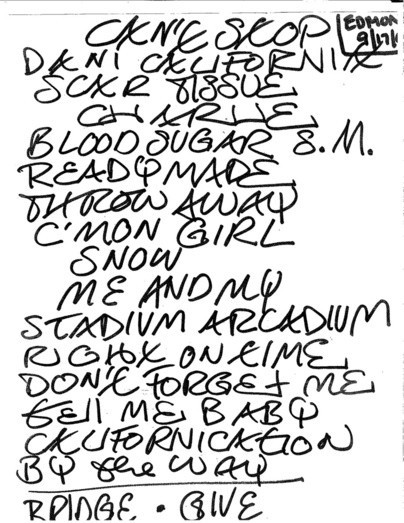 CAN'T STOP
EDMON
9/17/
DANI CALIFORNIA
SCAR TISSUE
CHARLIE
BLOOD SUGAR S.M.
READYMADE
THROW AWAY
C'MON GIRL
SNOW
ME AND MY
STADIUM ARCADIUM
RIGHT ON TIME
DON'T FORGET ME
TELL ME BABY
CALIFORNICATION
BY the WAY
BRIDGE • GIVE